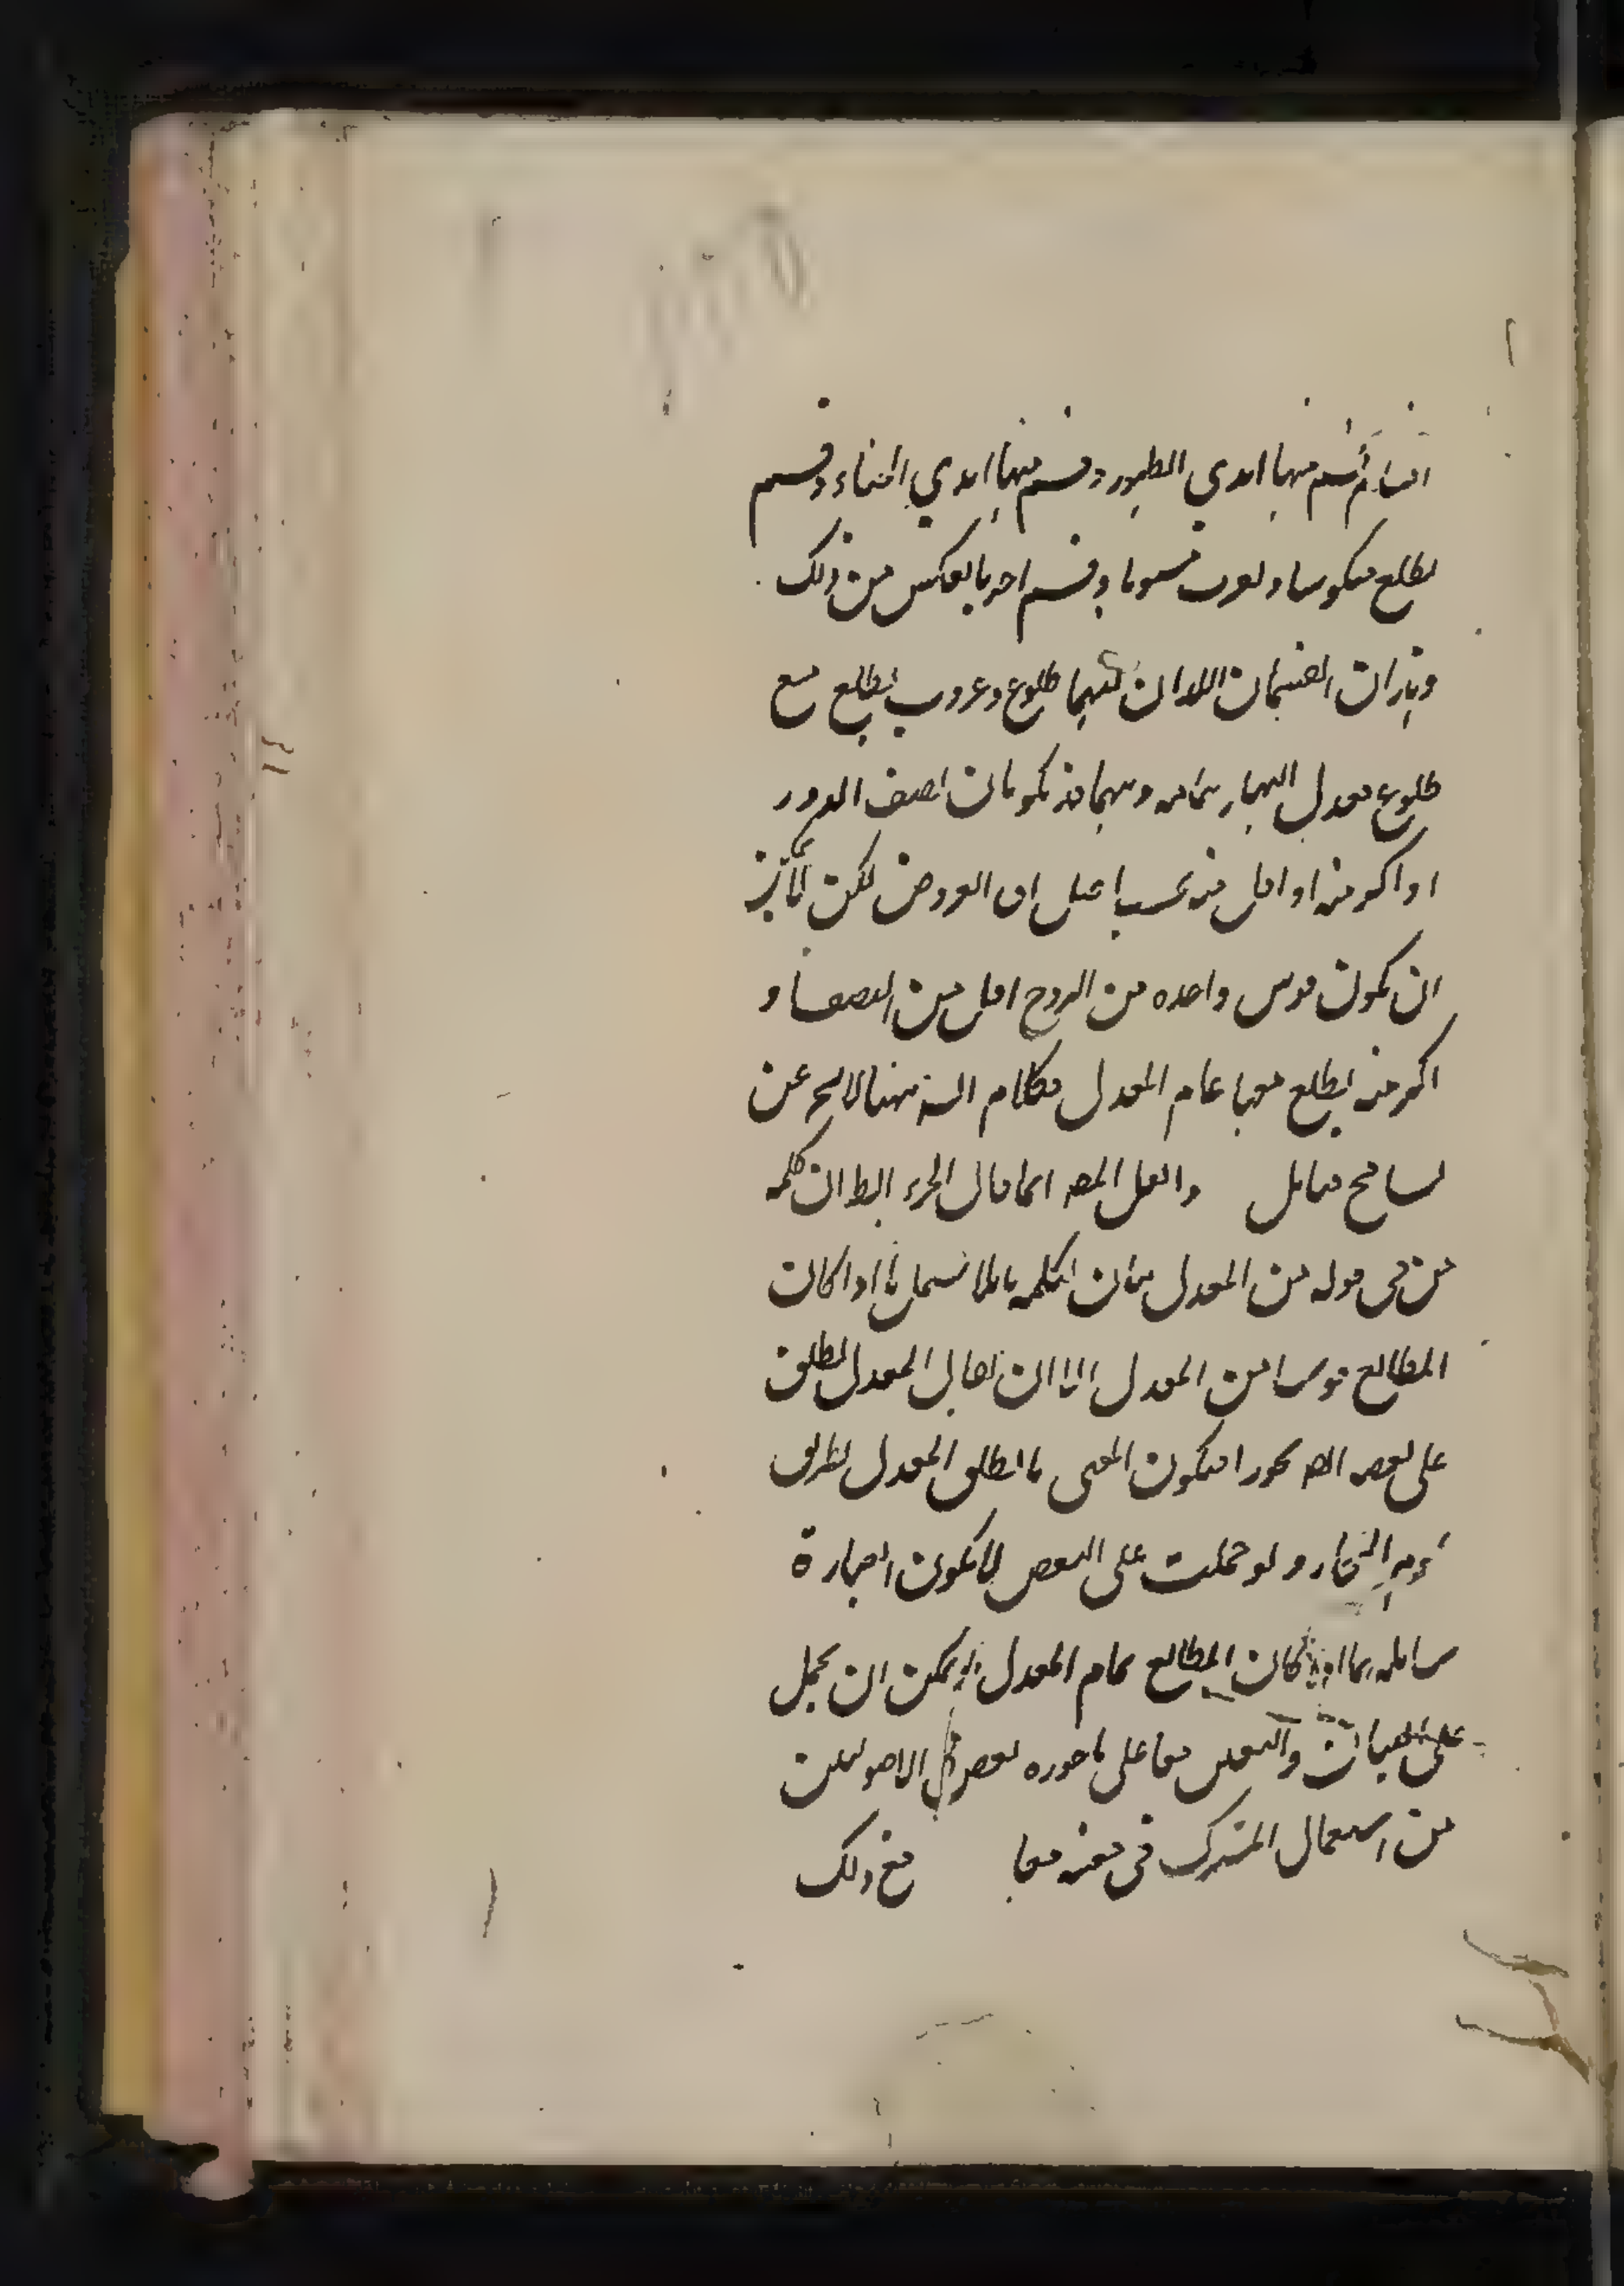 اقسام قسم منها ابدي الظهور وقسم منها ابدي الخفاء وقسم
يطلع معكوسا ويغرب مستويا وقسم اخر بالعكس من ذلك
وهذان القسمان اللذان لهما طلوع وغروب يطلع مع
طلوع معدل النهار بتمامه ومنهما قد يكونان نصف الدور
او اكثر منه او اقل منه بحسب اختلاف العروض لكن
ان يكون قوس واحدة من البروج اقل من النصف او
اكثر منه يطلع معها تمام المعدل فكلام الش ههنا لا يخ عن
تسامح فتامل ولعل المصـ انما قال الجزء الطـ ان كلمة
من في قوله من المعدل بيان لكلمة ما فلا يشمل ما اذا كان
المطالع قوسا من المعدل الا ان يقال المعدل يطلق
على بعضه ايضـ تجوزا فيكون المعنى ما يطلق المعدل بطريق
ولو حملت على البعض لا يكون العبارة
شاملة بما اذا كان المطالع تمام المعدل او يمكن ان يحمل
على البيان والبعض معا على ما جوزه بعض من الاصوليين
من استعمال المشترك في معنييه معا مع ذلك